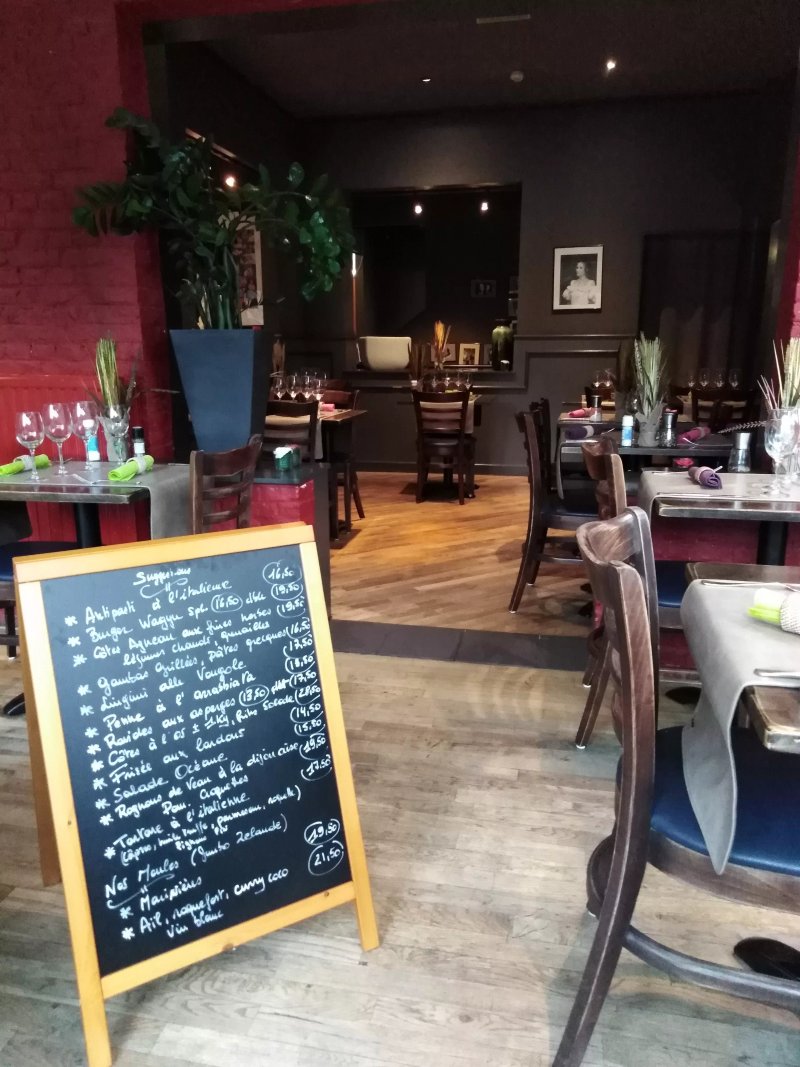 Suggestions
* Antipasti à l'italienne 16,50
* Burger Wagyu Spb. (16,50) dble 19,50
* Côtes Agneau aux fines herbes 19,50
légumes chauds, grenailles
* Gambas grillées, pâtes grecques 16,50
* Linguini alle Vongole 17,50
* Penne à l'arrabbiata
* Ravioles aux asperges (13,50) dble
* Côtes à l'os ± 1kg, frites Salade
* Frisée aux lardons 14,50
* Salade Océane 15,50
* Rognons de veau à la dijonnaise 19,50
Pom. croquettes
* Tartare à l'italienne 17,50
(câpres, huile truffe, parmesan, roquette)
Nos Moules (Jumbo Zelande)
* Marinières 19,50
* Ail, roquefort, curry coco 21,50
vin blanc